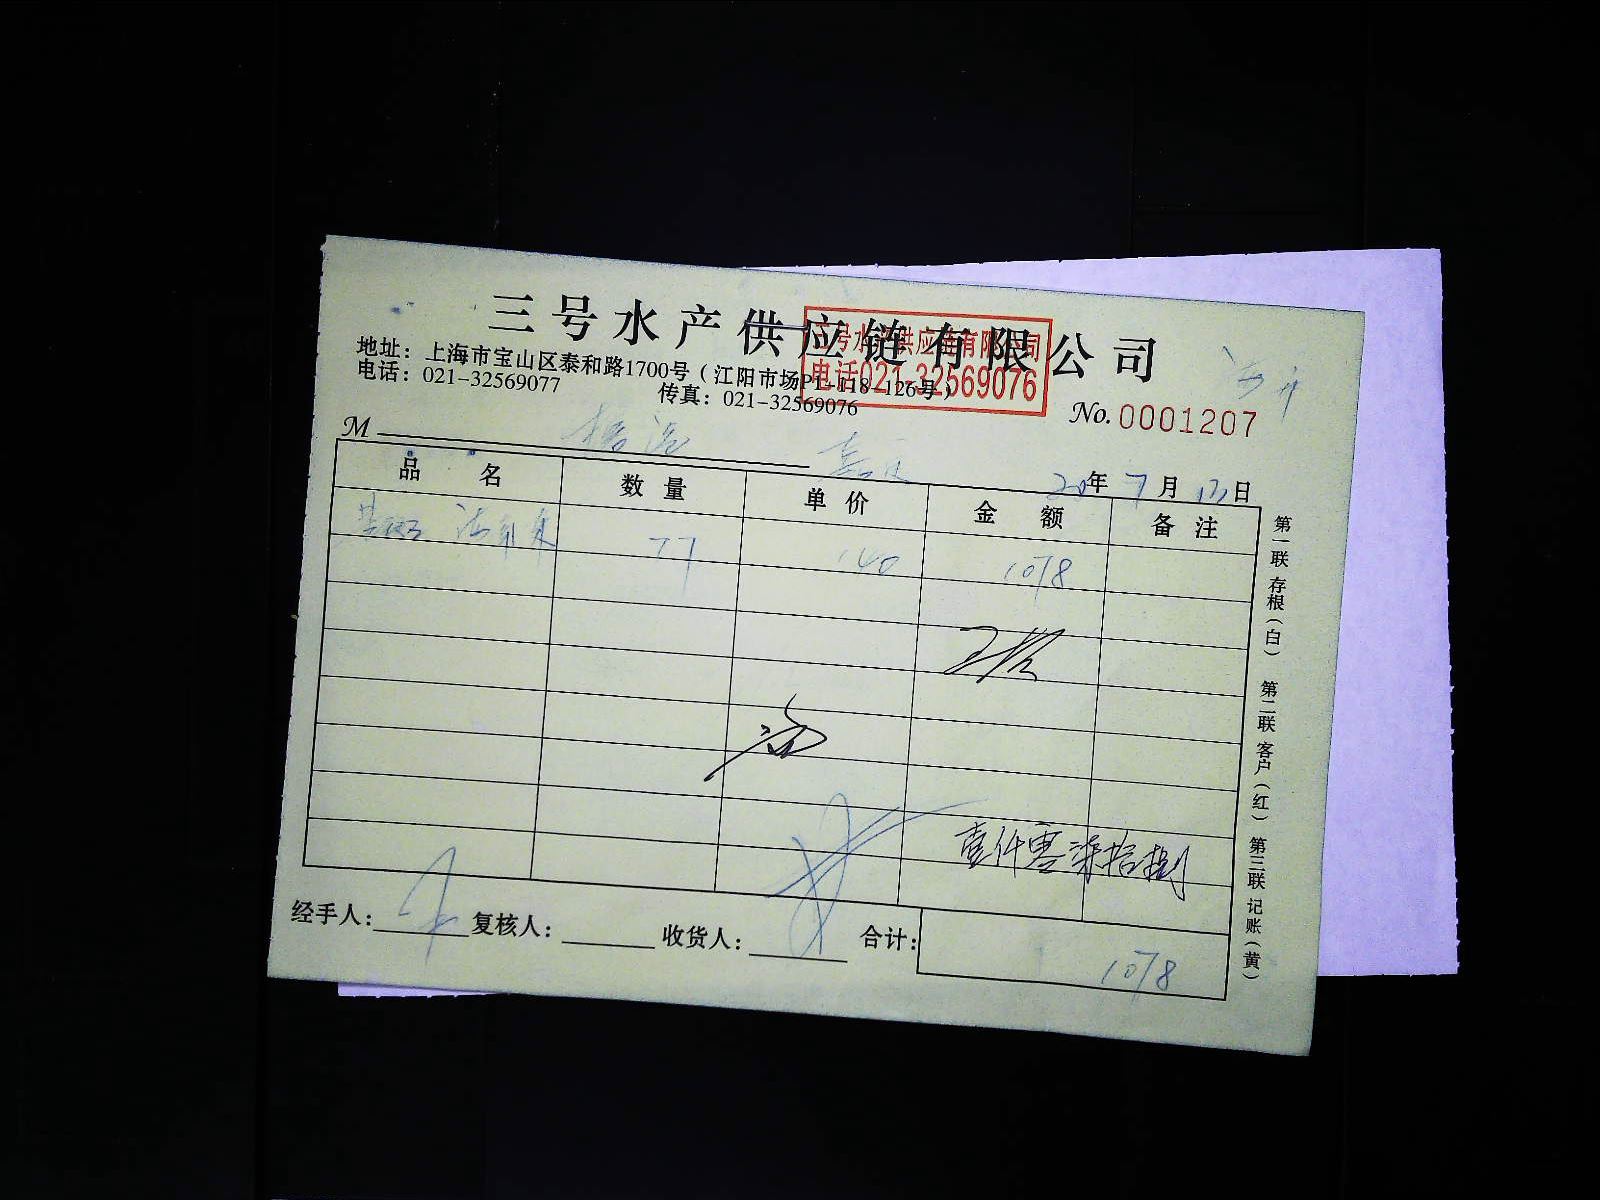 三号水产供应链有限公司
三号水产供应链有限公司
电话021-32569076
地址：上海市宝山区泰和路1700号（江阳市场P1-118-126号）
电话：021-32569077 传真：021-32569076
No.0001207
M
20年7月 日
品名 数量 单价 金额 备注
77 140 1078
壹仟零柒拾捌
经手人： 复核人： 收货人： 合计：
1078
第一联 存根（白） 第二联 客户（红） 第三联 记账（黄）